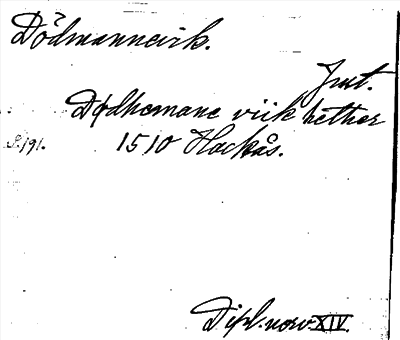 Dödmannevik.
Jmt.
Dødhemane viik hether
S. 191. 1510 Hackås.
Dipl. norv. XIV.